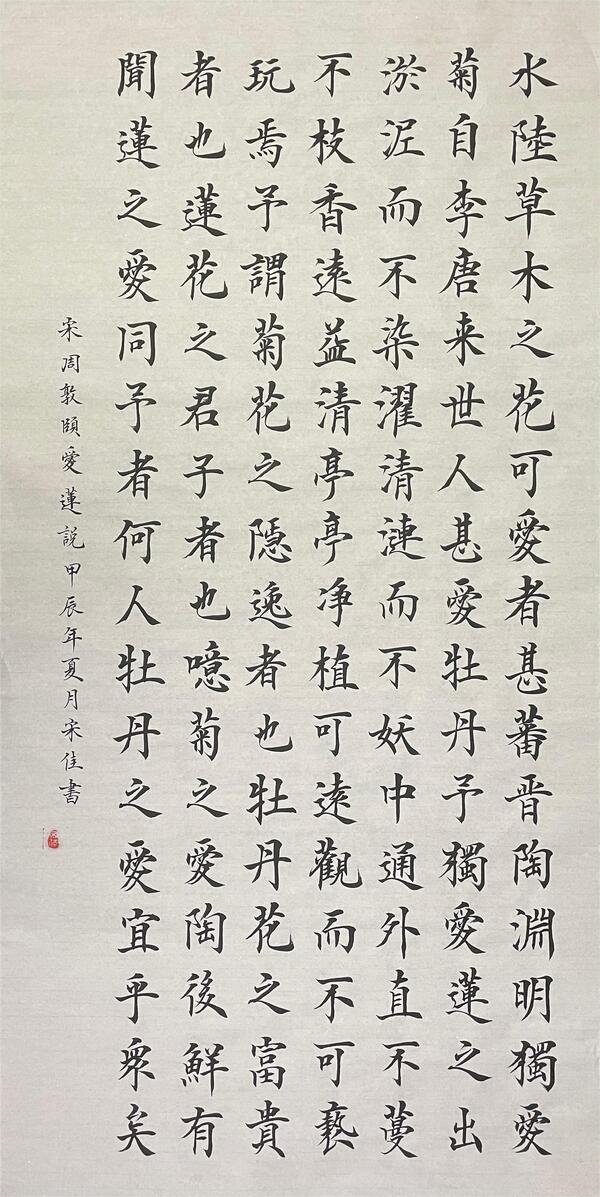 水陸草木之花可愛者甚蕃晋陶淵明獨愛
菊自李唐来世人甚愛牡丹予獨愛蓮之出
淤泥而不染濯清漣而不妖中通外直不蔓
不枝香遠益清亭亭净植可遠觀而不可褻
玩焉予謂菊花之隱逸者也牡丹花之富貴
者也蓮花之君子者也噫菊之愛陶後鮮有
聞蓮之愛同予者何人牡丹之愛宜乎衆矣
宋周敦頤愛蓮説甲辰年夏月宋佳書